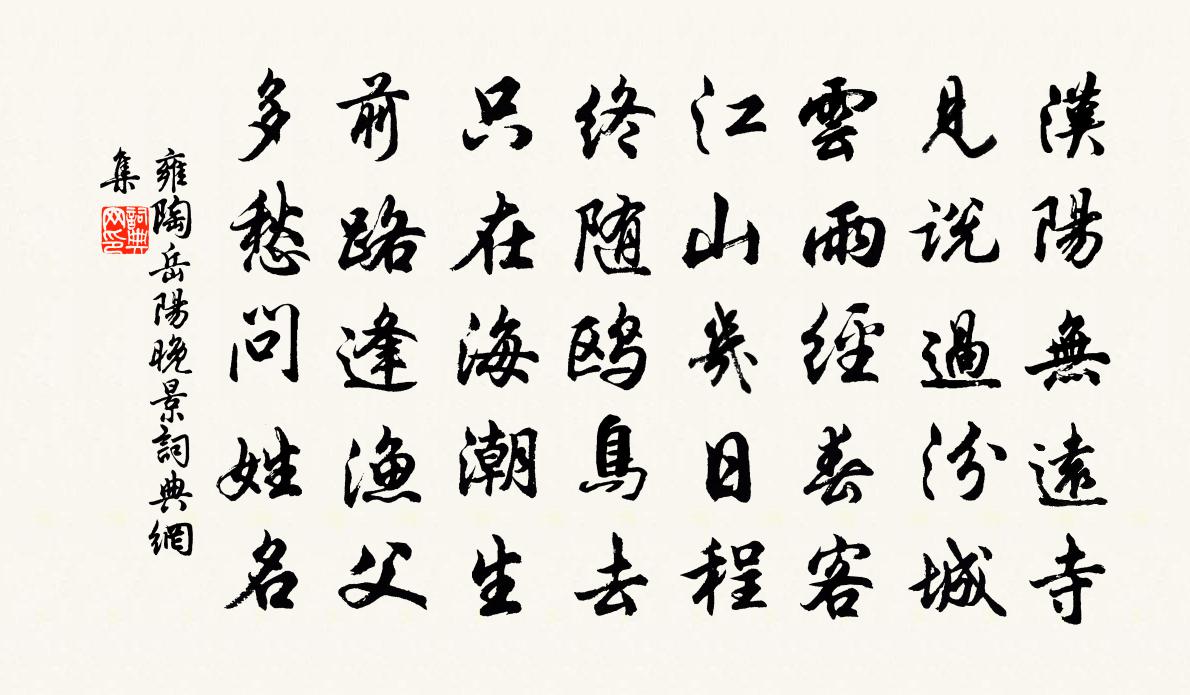 漢陽無遠寺
見説過汾城
雲雨經春客
江山幾日程
終随鷗鳥去
只在海潮生
前路逢漁父
多愁問姓名
雍陶岳陽晚景詞典網
集
詞典
网印